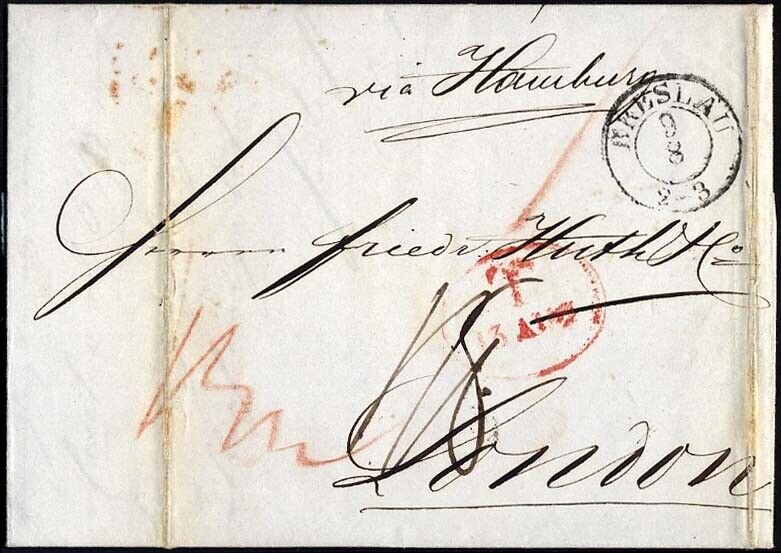 via Hamburg
BRESLAU
9
8
2-3
Herrn Friedr. Huth & Co
T
13 AU
London